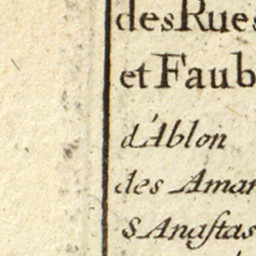 des Rues
et Faub
d'Ablon
des Aman
S Anastas